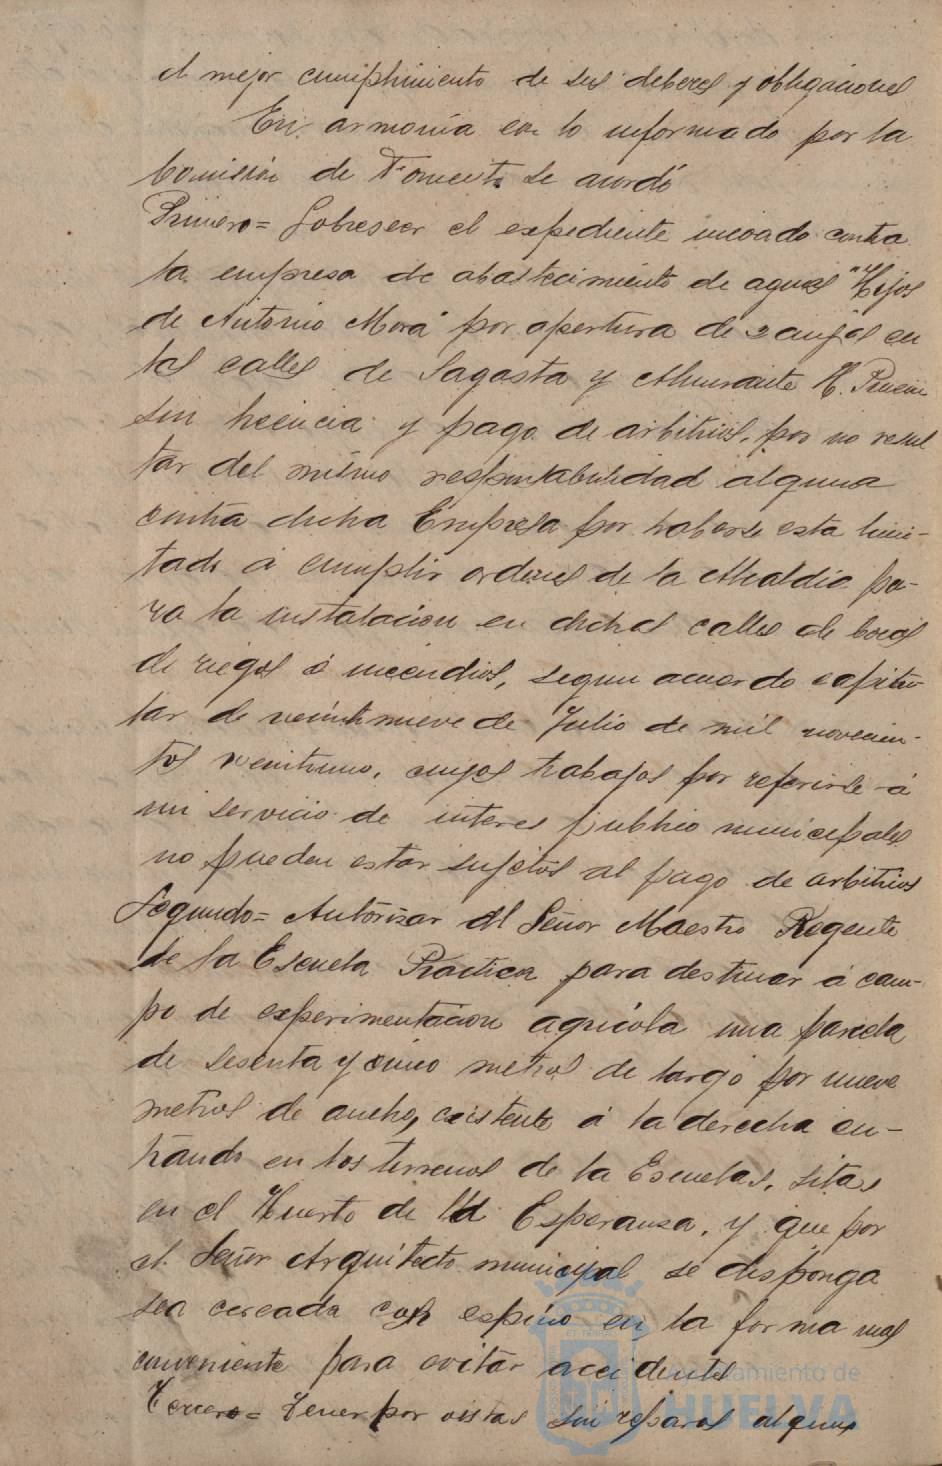 el mejor cumplimiento de sus deberes y obligaciones
En armonía con lo informado por la
Comisión de Fomento se acordó
Primero= Sobreseer el expediente incoado contra
la empresa de abastecimiento de aguas "Hijos
de Antonio Mora" por apertura de zanjas en
las calles de Sagasta y Almirante H. Pinzón
sin licencia y pago de arbitrios, por no resul
tar del mismo responsabilidad alguna
contra dicha Empresa por haberse esta limi-
tado á cumplir ordenes de la Alcaldía pa-
ra la instalación en dichas calles de bocas
de riegos é incendios, segun acuerdo capitu-
lar de veintinueve de Julio de mil novecien-
tos veintiuno, cuyos trabajos por referirse á
un servicio de interes publico municipales
no pueden estar sujetos al pago de arbitrios
Segundo= Autorizar al Señor Maestro Regente
de la Escuela Practica para destinar á cam-
po de experimentación agricola una parcela
de sesenta y cinco metros de largo por nueve
metros de ancho, existente á la derecha en-
trando en los terrenos de la Escuelas, sitas
en el Huerto de la Esperanza, y que por
el Señor Arquitecto municipal se disponga
sea cercada con espino en la forma mas
conveniente para evitar accidentes
Tercero= Tener por vistas sin reparos alguno
Ayuntamiento de
HUELVA